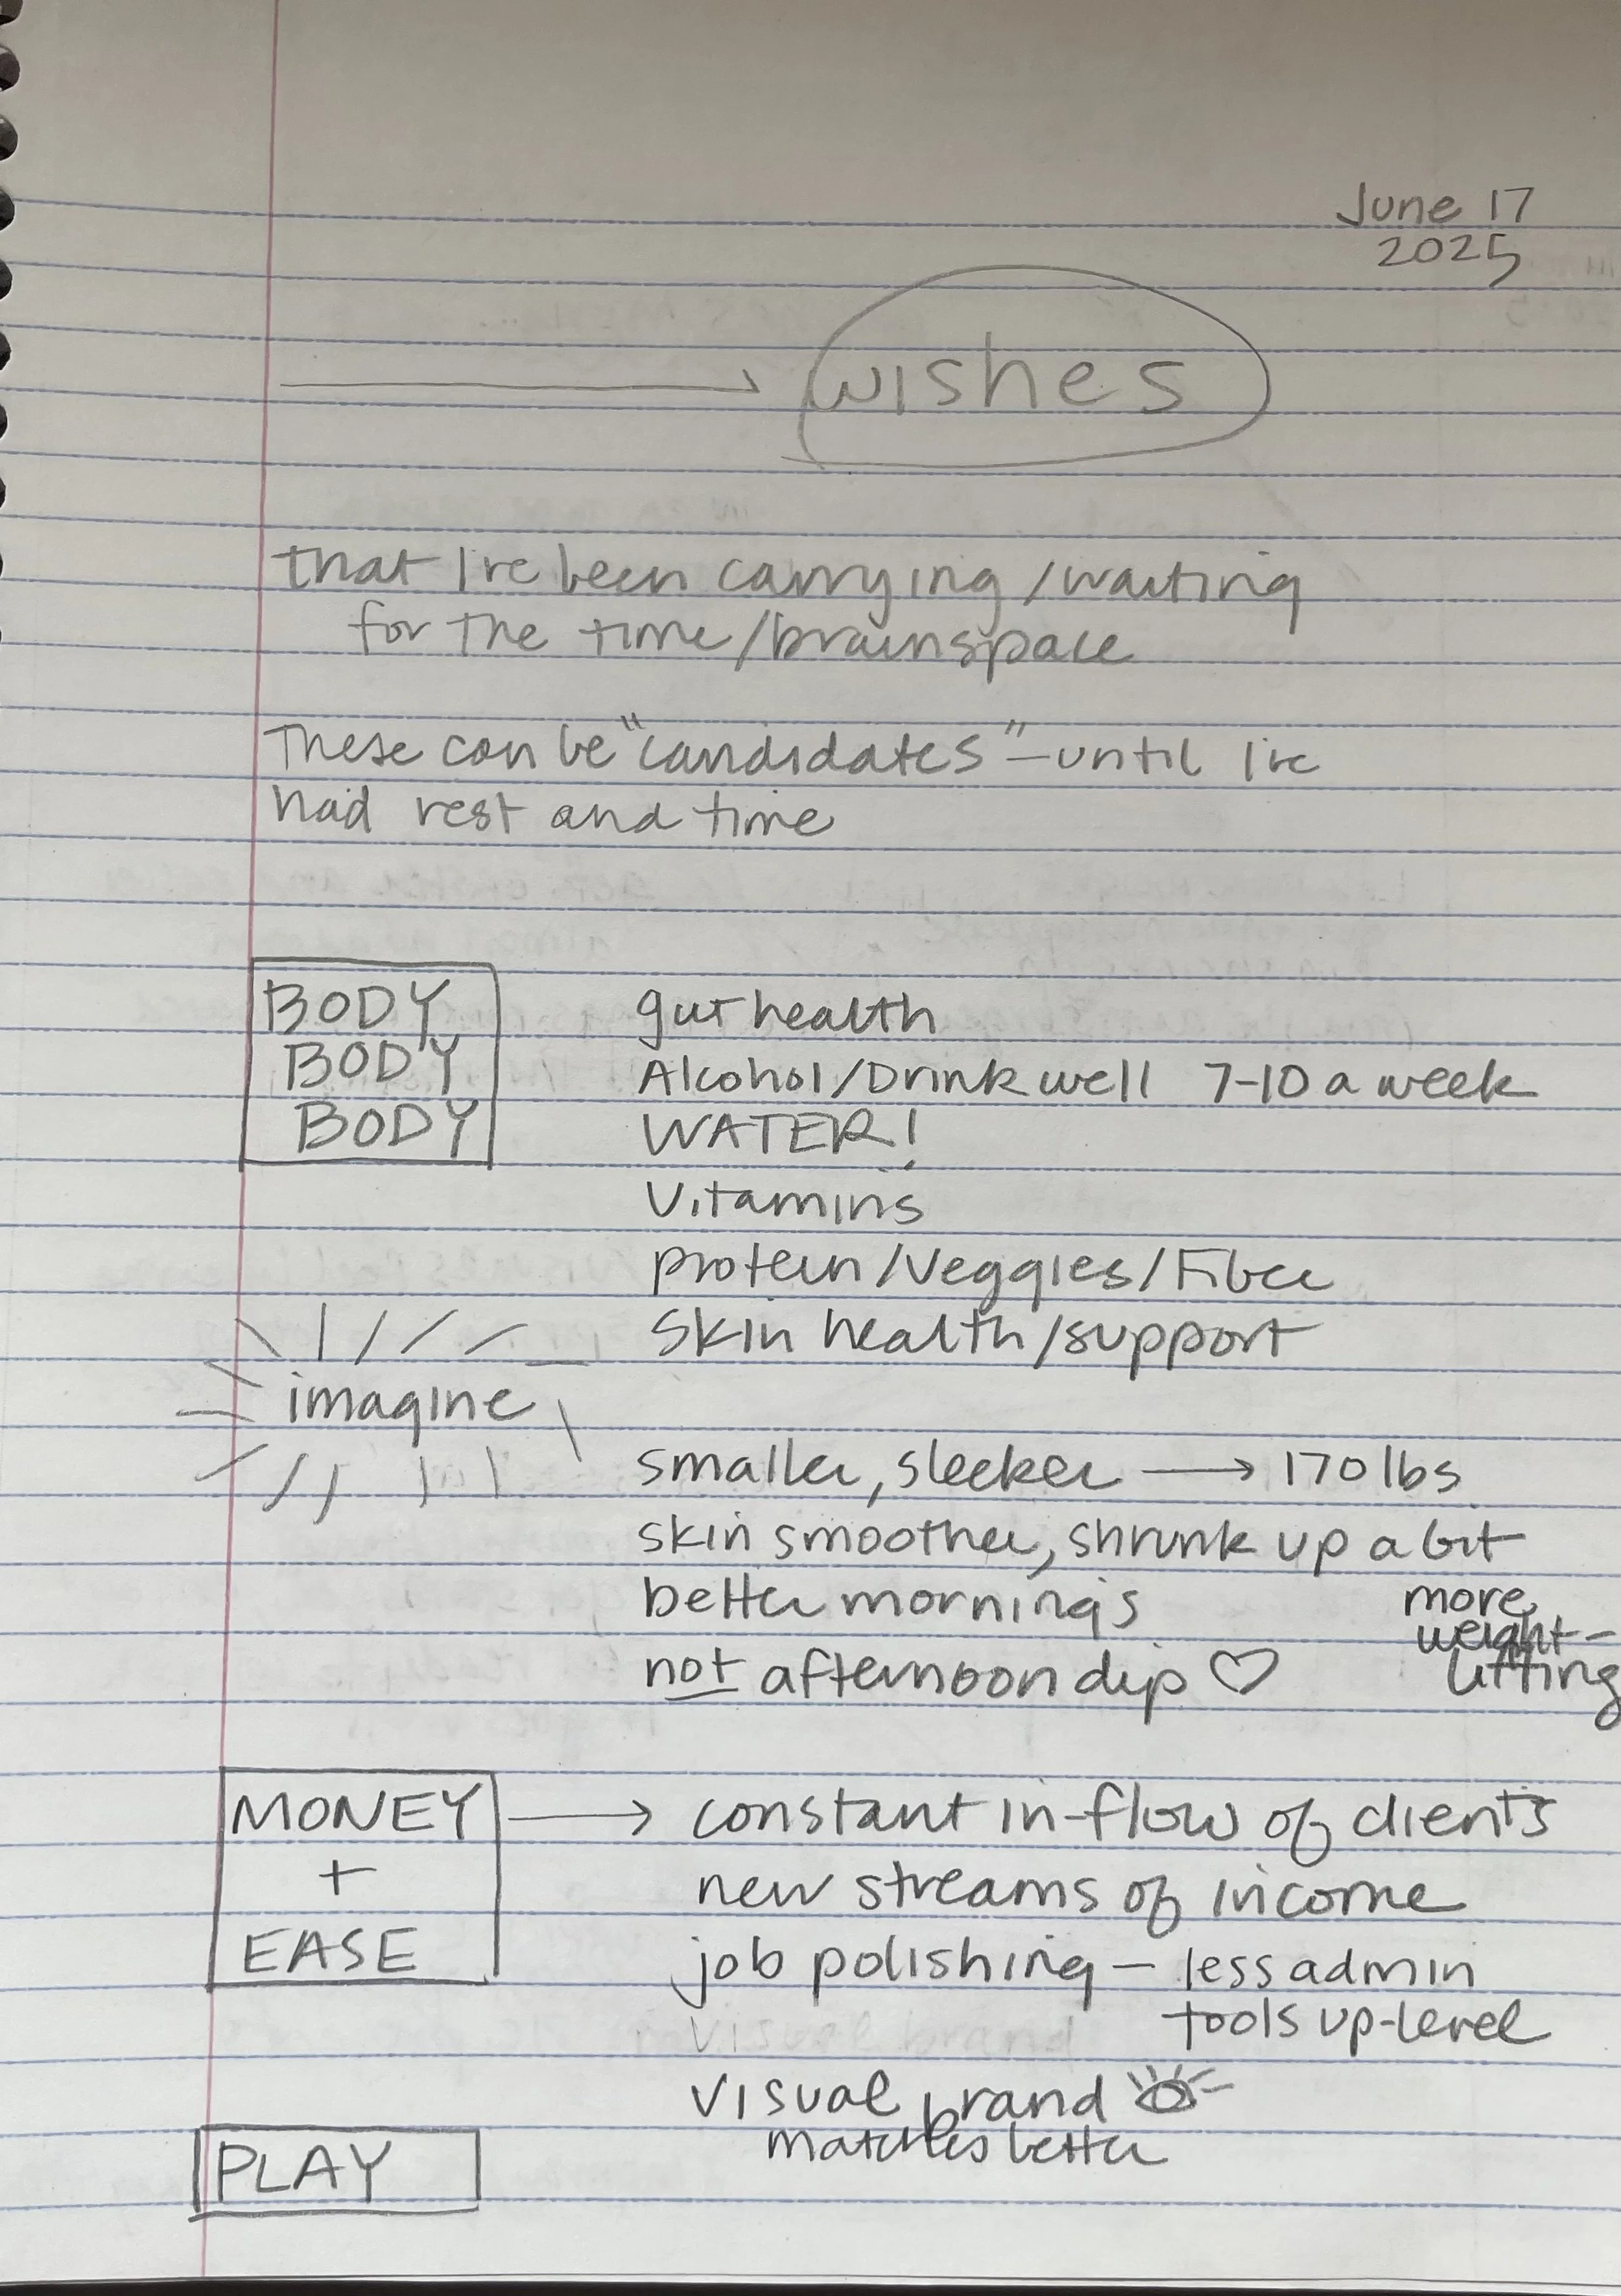 June 17
2025
wishes
that I've been carrying/waiting
for the time/brainspace
These can be "candidates" - until I've
had rest and time
BODY
BODY
BODY
gut health
Alcohol/Drink well 7-10 a week
WATER!
Vitamins
protein/Veggies/Fiber
Skin health/support
imagine
smaller, sleeker → 170 lbs
skin smoother, shrunk up a bit
better mornings
not afternoon dip ♡
more
weight-
lifting
MONEY
+
EASE
→ constant in-flow of clients
new streams of income
job polishing - less admin
tools up-level
visual brand
matches better
PLAY